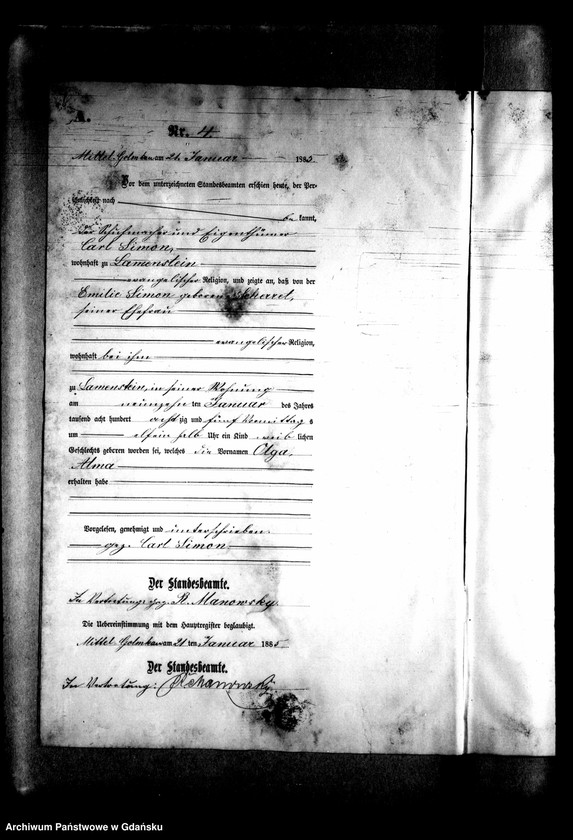 A.
Nr. 4
Mittel Golmkau am 21. Januar 1885
Vor dem unterzeichneten Standesbeamten erschien heute, der Per-
sönlichkeit nach
be kannt,
der Schuhmacher und Eigenthümer
Carl Simon,
wohnhaft zu Lamenstein
evangelischer Religion, und zeigte an, daß von der
Emilie Simon geborene
seiner Ehefrau
evangelischer Religion,
wohnhaft bei ihm
zu Lamenstein, in seiner Wohnung
am neunzehn ten Januar des Jahres
tausend acht hundert acht zig und fünf Vormittag s
um elfein halb Uhr ein Kind weib lichen
Geschlechts geboren worden sei, welches die Vornamen Olga,
Alma
erhalten habe
Vorgelesen, genehmigt und unterschrieben.
gez. Carl Simon
Der Standesbeamte.
In Vertretung: gez. R. Manowsky.
Die Uebereinstimmung mit dem Hauptregister beglaubigt.
Mittel Golmkau am 21 ten Januar 1885
Der Standesbeamte.
In Vertretung: R Manowsky
Archiwum Państwowe w Gdańsku